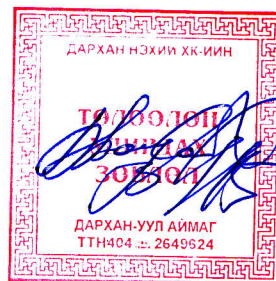 ДАРХАН НЭХИЙ ХК-ИЙН
ТӨЛӨӨЛӨН
УДИРДАХ
ЗӨВЛӨЛ
ДАРХАН-УУЛ АЙМАГ
ТТН404 2649624